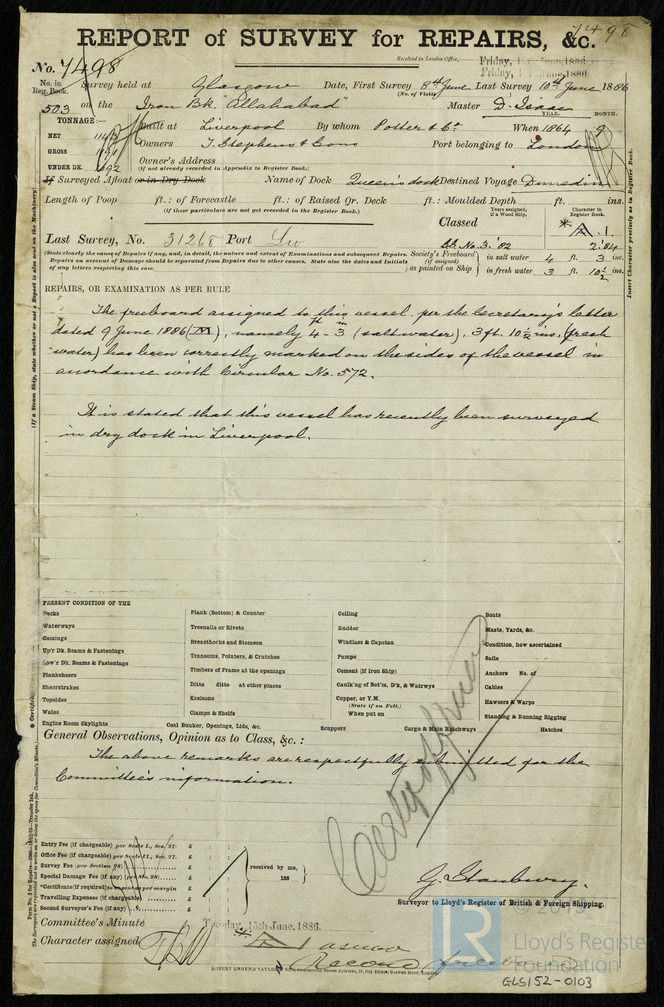 7498
REPORT of SURVEY for REPAIRS, &c.
Received in London Office,
Friday, June, 1886
Friday, June, 1886
No. 7498
No. in Reg. Book. Survey held at Glasgow Date, First Survey 8th June Last Survey 10th June 1886
(No. of Visits
503 on the Iron Bk. "Allahabad" Master D. Isaac
TONNAGE:— YEAR. MONTH.
NET Built at Liverpool By whom Potter & Co When 1864 9
GROSS Owners T. Stephens & Sons Port belonging to London
UNDER DK. 1092 Owner's Address
(if not already recorded in Appendix to Register Book.)
If Surveyed Afloat or in Dry Dock Name of Dock Queen's dock Destined Voyage Dunedin
Length of Poop ft.: of Forecastle ft.: of Raised Qr. Deck ft.: Moulded Depth ft. ins.
(if these particulars are not yet recorded in the Register Book.)
Years assigned, if a Wood Ship. Character in Register Book.
Classed A. 1.
Last Survey, No. 31268 Port Liv No. 3. '82 2.'84
(State clearly the cause of Repairs if any, and, in detail, the nature and extent of Examinations and subsequent Repairs.
Repairs on account of Damage should be separated from Repairs due to other causes. State also the dates and Initials
of any letters respecting this case.
Society's Freeboard (if assigned) as painted on Ship
in salt water 4 ft. 3 ins.
in fresh water 3 ft. 10½ ins.
Insert Character precisely as in Register Book.
(If a Steam Ship, state whether or not a Report is also sent on the Machinery)
REPAIRS, OR EXAMINATION AS PER RULE
The freeboard assigned to this vessel per the Secretary's letter
dated 9 June 1886 (M), namely 4ft 3in (salt water), 3ft. 10½ ins. (fresh
water) has been correctly marked on the sides of the vessel in
accordance with Circular No. 572.
It is stated that this vessel has recently been surveyed
in dry dock in Liverpool.
PRESENT CONDITION OF THE
Decks
Waterways
Comings
Up'r Dk. Beams & Fastenings
Low'r Dk. Beams & Fastenings
Planksheers
Sheerstrakes
Topsides
Wales
Engine Room Skylights
Plank (Bottom) & Counter
Treenails or Rivets
Breasthooks and Stemson
Transoms, Pointers, & Crutches
Timbers of Frame at the openings
Ditto ditto at other places
Keelsons
Clamps & Shelfs
Coal Bunker, Openings, Lids, &c.
Ceiling
Rudder
Windlass & Capstan
Pumps
Cement (if Iron Ship)
Caulk'ng of Bot'm, D'k, & Watrwys
Copper, or Y.M.
(State if on Felt.)
When put on
Scuppers
Cargo & Main Hatchways
Boats
Masts, Yards, &c.
Condition, how ascertained
Sails
Anchors No. of
Cables
Hawsers & Warps
Standing & Running Rigging
Hatches
General Observations, Opinion as to Class, &c. :
The above remarks are respectfully submitted for the
Committee's information.
Entry Fee (if chargeable) per Scale I., Sec. 27. £ : :
Office Fee (if chargeable) per Scale II., Sec. 27. £ : :
Survey Fee (per Section 28) £ : :
Special Damage Fee (if any) (per Sec. 28) £ : :
*Certificate (if required) to be sent as per margin £ : :
Travelling Expenses (if chargeable) £ : :
Second Surveyor's Fee (if any) £ : :
received by me,
188
G. Stanbury.
Surveyor to Lloyd's Register of British & Foreign Shipping.
Committee's Minute Tuesday, 15th June, 1886.
Character assigned
LR
© 2019
Lloyd's Register
Foundation
GLS152-0103